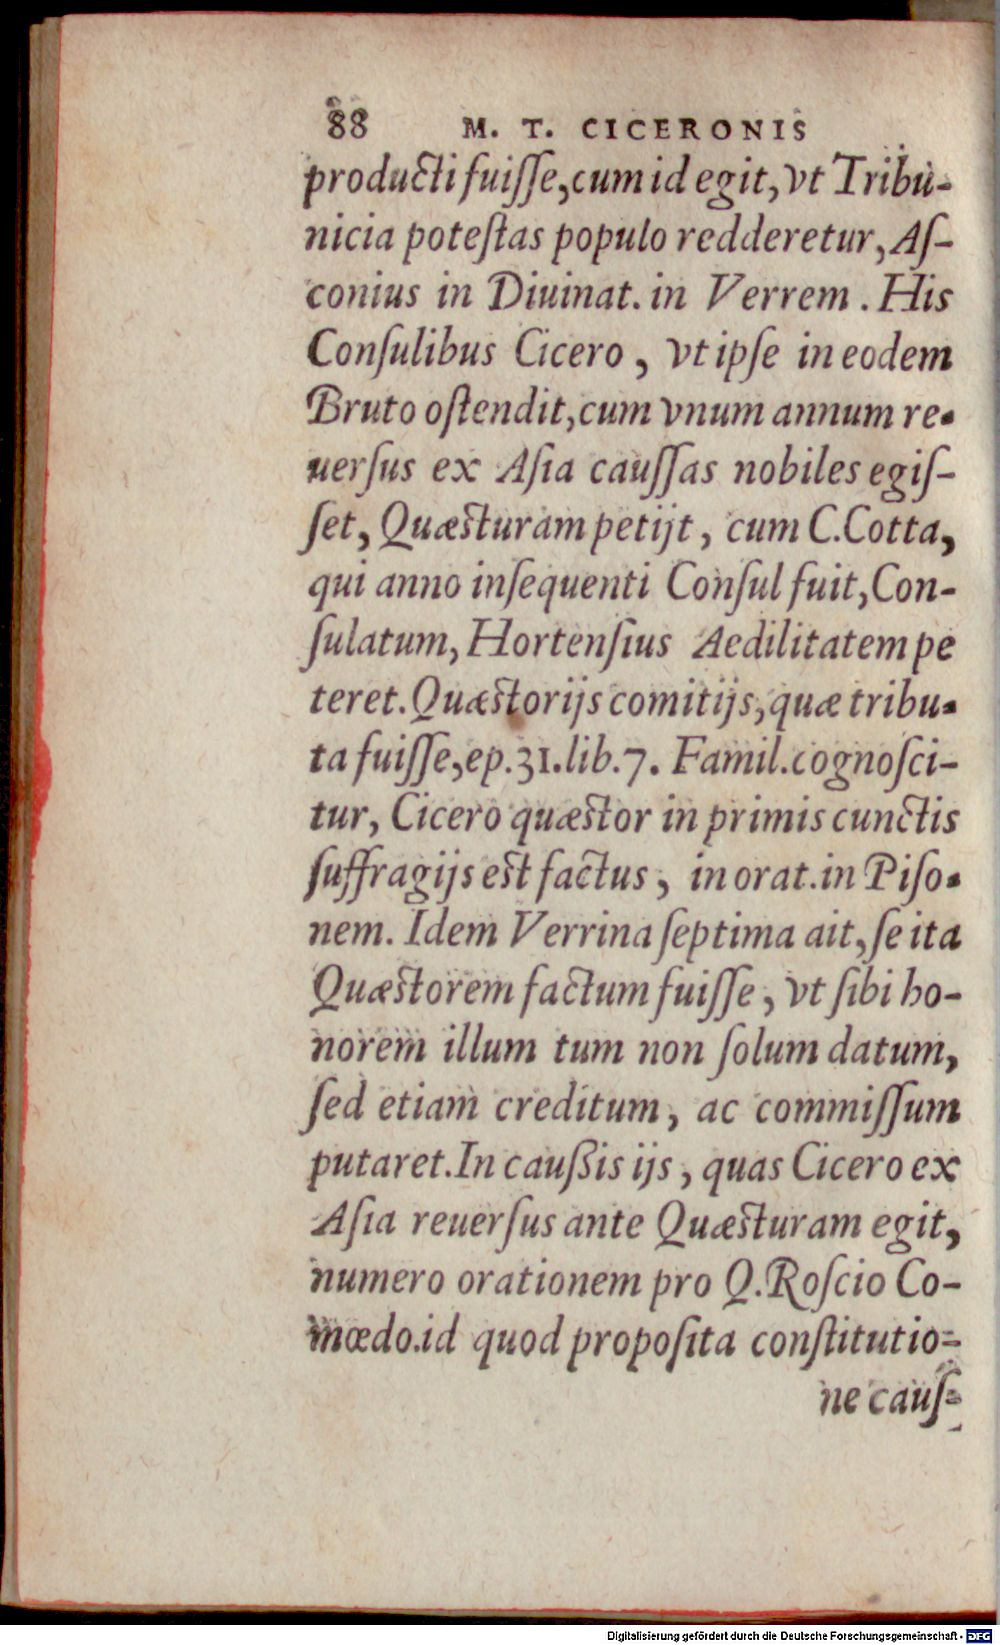 88 M. T. CICERONIS
producti fuiſſe, cum id egit, vt Tribu-
nicia poteſtas populo redderetur, Aſ-
conius in Diuinat. in Verrem. His
Conſulibus Cicero, vt ipſe in eodem
Bruto oſtendit, cum vnum annum re-
uerſus ex Aſia cauſſas nobiles egiſ-
ſet, Quæſturam petijt, cum C. Cotta,
qui anno inſequenti Conſul fuit, Con-
ſulatum, Hortenſius Aedilitatem pe
teret. Quæſtorijs comitijs, quæ tribu-
ta fuiſſe, ep. 31. lib. 7. Famil. cognoſci-
tur, Cicero quæſtor in primis cunctis
ſuffragijs eſt factus, in orat. in Piſo-
nem. Idem Verrina ſeptima ait, ſe ita
Quæſtorem factum fuiſſe, vt ſibi ho-
norem illum tum non ſolum datum,
ſed etiam creditum, ac commiſſum
putaret. In caußis ijs, quas Cicero ex
Aſia reuerſus ante Quæſturam egit,
numero orationem pro Q. Roſcio Co-
mœdo. id quod propoſita conſtitutio-
ne cauſ-
Digitalisierung gefördert durch die Deutsche Forschungsgemeinschaft - DFG